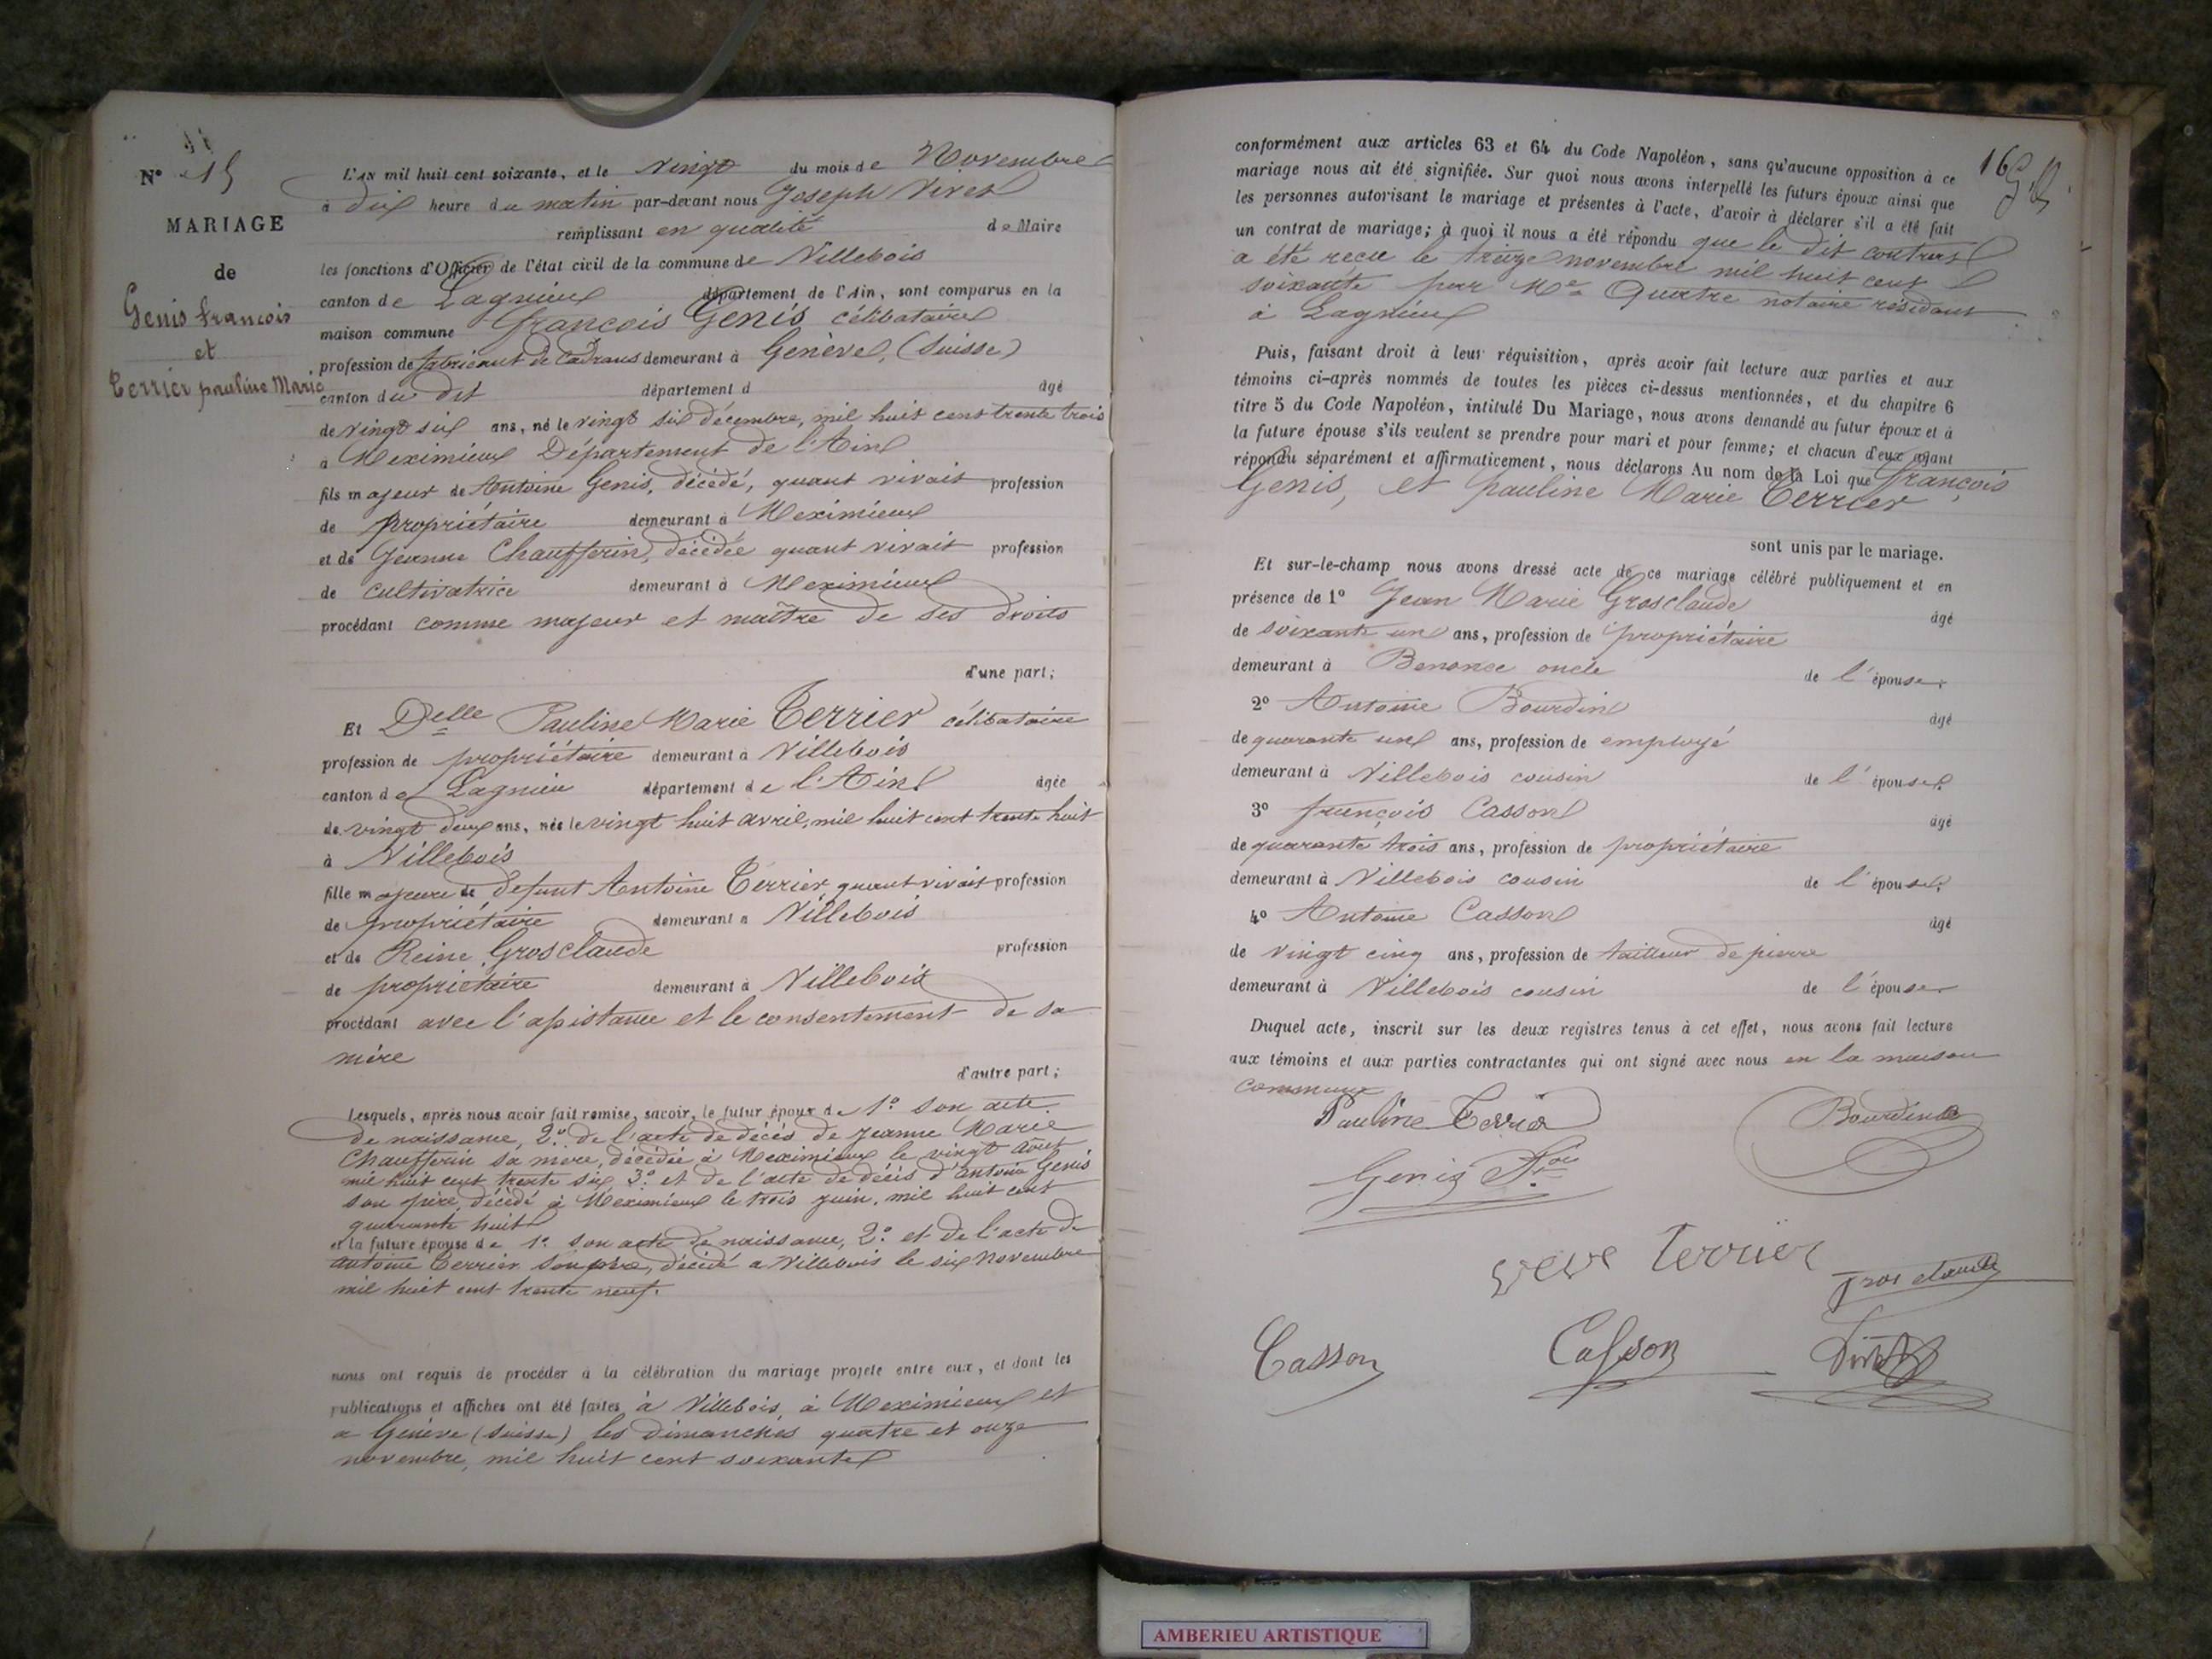 N° 15
MARIAGE
de
Genis françois
et
Terrier pauline Marie
L'AN mil huit cent soixante, et le vingt du mois de Novembre
à dix heure du matin par-devant nous Joseph Vivet
remplissant en qualité de Maire
les fonctions d'Officier de l'état civil de la commune de Villebois
canton de Lagnieux département de l'Ain, sont comparus en la
maison commune François Genis célibataire
profession de fabricant de Cadrans demeurant à Genève, (Suisse)
canton du dit département d âgé
de vingt six ans, né le vingt six décembre, mil huit cent trente trois
à Meximieux Département de l'Ain
fils majeur de Antoine Genis, décédé, quant vivait profession
de propriétaire demeurant à Meximieux
et de Jeanne Chaufferin, décédée quant vivait profession
de cultivatrice demeurant à Meximieux
procédant comme majeur et maître de ses droits
d'une part;
Et Delle Pauline Marie Terrier célibataire
profession de propriétaire demeurant à Villebois
canton de Lagnieu département de l'Ain âgée
de vingt deux ans, née le vingt huit avril, mil huit cent trente huit
à Villebois
fille majeure de defunt Antoine Terrier, quant vivait profession
de propriétaire demeurant à Villebois
et de Reine Grosclaude profession
de propriétaire demeurant à Villebois
procédant avec l'assistance et le consentement de sa
mère
d'autre part;
Lesquels, après nous avoir fait remise, savoir, le futur époux de 1° son acte
de naissance, 2° de l'acte de décès de Jeanne Marie
Chaufferin sa mère, décédée à Meximieux le vingt août
mil huit cent trente six, 3° et de l'acte de décès d'antoine Genis
son père, décédé à Meximieux le trois juin, mil huit cent
quarante huit
et la future épouse de 1° son acte de naissance, 2° et de l'acte de
antoine Terrier son père, décédé a Villebois le six Novembre
mil huit cent trente neuf.
nous ont requis de procéder à la célébration du mariage projeté entre eux, et dont les
publications et affiches ont été faites à Villebois, à Meximieux et
a Genève (Suisse) les dimanches quatre et onze
novembre, mil huit cent soixante
16
conformément aux articles 63 et 64 du Code Napoléon, sans qu'aucune opposition à ce
mariage nous ait été signifiée. Sur quoi nous avons interpellé les futurs époux ainsi que
les personnes autorisant le mariage et présentes à l'acte, d'avoir à déclarer s'il a été fait
un contrat de mariage; à quoi il nous a été répondu que le dit contrat
a été reçu le treize novembre mil huit cent
soixante par Me Quatre notaire résidant
à Lagnieux
Puis, faisant droit à leur réquisition, après avoir fait lecture aux parties et aux
témoins ci-après nommés de toutes les pièces ci-dessus mentionnées, et du chapitre 6
titre 5 du Code Napoléon, intitulé Du Mariage, nous avons demandé au futur époux et à
la future épouse s'ils veulent se prendre pour mari et pour femme; et chacun d'eux ayant
répondu séparément et affirmativement, nous déclarons Au nom de la Loi que François
Genis, et Pauline Marie Terrier
sont unis par le mariage.
Et sur-le-champ nous avons dressé acte de ce mariage célébré publiquement et en
présence de 1° Jean Marie Grosclaude âgé
de soixante un ans, profession de propriétaire
demeurant à Benonce oncle de l'épouse.
2° Antoine Bourdin âgé
de quarante un ans, profession de employé
demeurant à Villebois cousin de l'épouse.
3° françois Casson âgé
de quarante trois ans, profession de propriétaire
demeurant à Villebois cousin de l'épouse.
4° Antoine Casson âgé
de vingt cinq ans, profession de tailleur de pierre
demeurant à Villebois cousin de l'épouse
Duquel acte, inscrit sur les deux registres tenus à cet effet, nous avons fait lecture
aux témoins et aux parties contractantes qui ont signé avec nous en la maison
commune
Pauline Terrier Bourdin
Genis Fois
veve terrier
gros claude
Casson Casson Vivet
AMBERIEU ARTISTIQUE